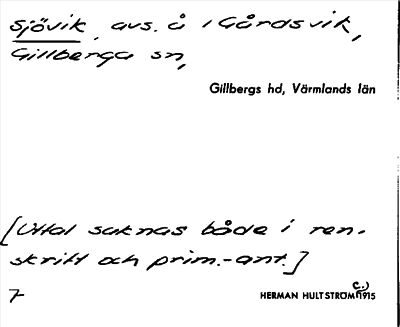 Sjövik, avs. å /Gårdsvik,
Gillberga sn,
Gillbergs hd, Värmlands län
[Uttal saknas både i ren-
skrift och prim.-ant.]
7 HERMAN HULTSTRÖM (c.) 1915